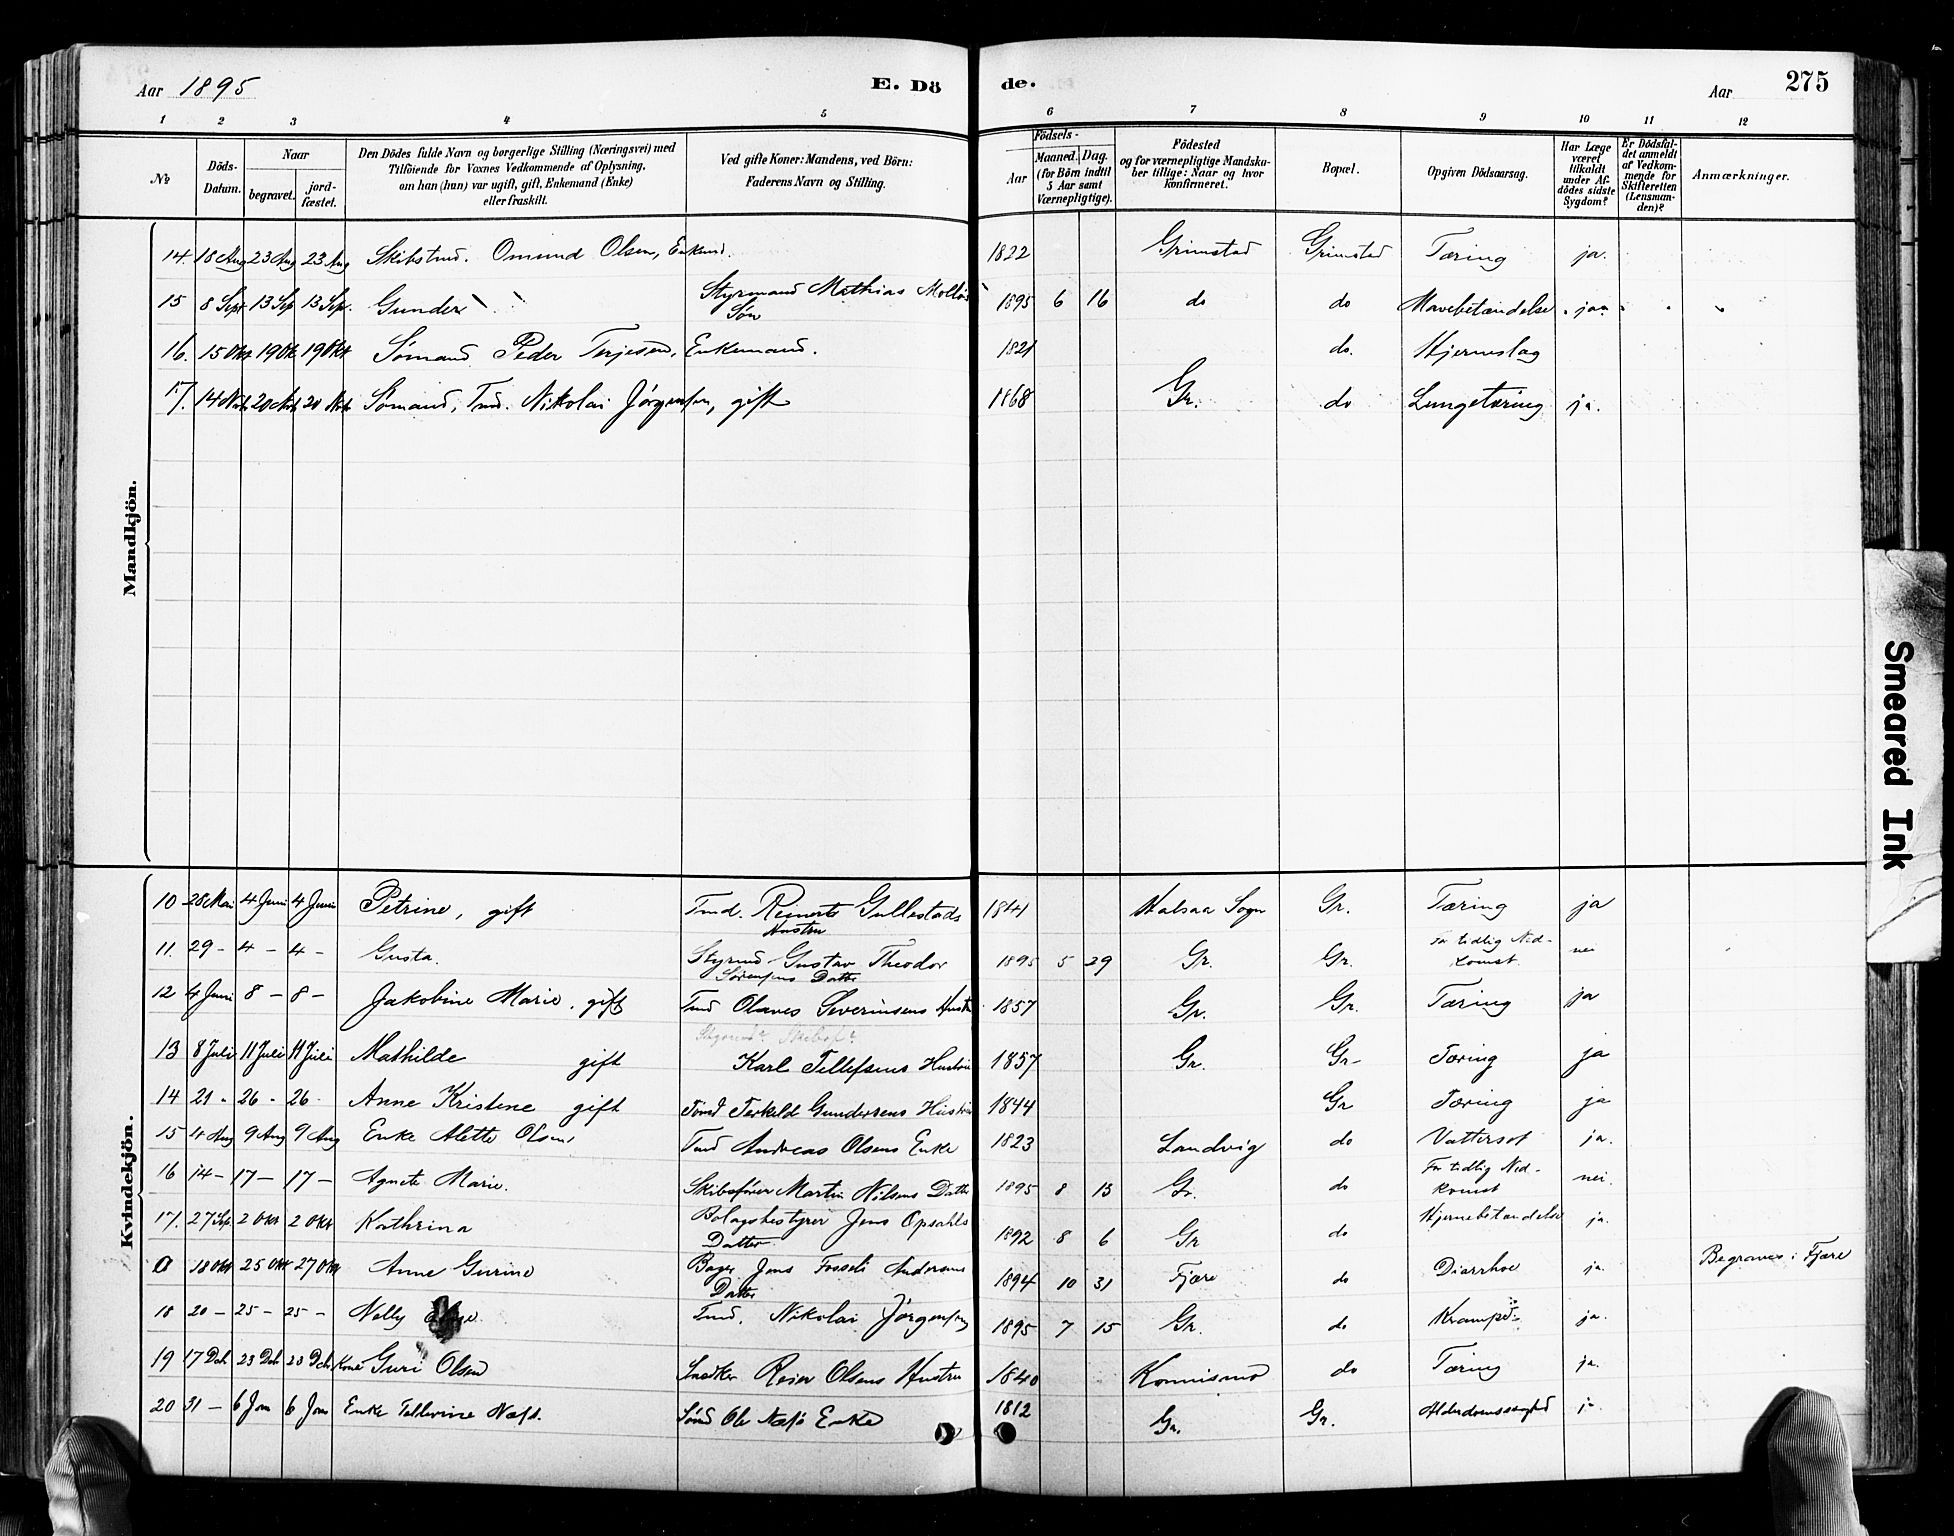 Aar 1895 E. Dö de. Aar 275
1 2 3 4 5 6 7 8 9 10 11 12
№
Döds-
Datum.
Naar
begravet.
jord-
fæstet.
Den Dödes fulde Navn og borgerlige Stilling (Næringsvei) med
Tilföiende for Voxnes Vedkommende af Oplysning,
om han (hun) var ugift, gift, Enkemand (Enke)
eller fraskilt.
Ved gifte Koner: Mandens, ved Börn:
Faderens Navn og Stilling.
Födsels-
Aar
Maaned. Dag.
(for Börn indtil
5 Aar samt
Værnepligtige).
Födested
og for værnepligtige Mandska-
ber tillige: Naar og hvor
konfirmeret.
Bopæl.
Opgiven Dödsaarsag.
Har Læge
været
tilkaldt
under Af-
dödes sidste
Sygdom?
Er Dödsfal-
det anmeldt
af Vedkom-
mende for
Skifteretten
(Lensman-
den)?
Anmærkninger.
Mandkjön.
14. 18 Aug 23 Aug 23 Aug Skibstmd. Omund Olsen, Enkmd. 1822 Grimstad Grimstad Tæring ja.
15 8 Sept 13 Sep 13 Sep. Gunder Styrmand Mathias 1895 6 16 do do Mavebetændelse ja
Søn
16. 15 Okt 19 Okt 19 Okt Sømand Peder Terjesen, Enkemand. 1821 do. Hjerneslag
17. 14 Nov 20 Nov 20 Nov Sømand, Tmd. Nikolai Jörgensen, gift 1868 Gr. do Lungetæring ja.
Kvindekjön.
10 28 Mai 4 Juni 4 Juni Petrine, gift Tmd. Reinert Gullestads 1841 Halsaa Sogn Gr. Tæring ja
Hustru
11. 29 - 4 - 4 - Gusta. Styrmd Gustav Theodor 1895 5 29 Gr. Gr. For tidlig Ned-
Sørensens Datter komst nei
12 4 Juni 8 - 8 - Jakobine Marie, gift Tmd Olaves Severinsens Hustru 1857 Gr. Gr. Tæring ja
13 8 Juli 11 Juli 11 Juli Mathilde gift Karl Tellefsens Hustru 1857 Gr. Gr- Tæring ja
14 21 - 26 - 26 - Anne Kristine gift Tømd Terkild Gundersens Hustru 1844 Gr Tæring ja
15 4 Aug 9 Aug 9 Aug Enke Alette Olsen Tmd Andreas Olsens Enke 1823 Landvig do Vattersot ja.
16 14 - 17 - 17 - Agnete Marie. Skibsfører Martin Nilsens Datter 1895 8 13 Gr. do For tidlig Ned-
komst nei.
17. 27 Sep. 2 Okt 2 Okt Kathrina Bolagsbestyrer Jens Opsahls 1892 8 6 Gr do Hjernebetændelse ja.
Datter.
0 18 Okt 25 Okt 27 Okt Anne Gurine Bager Jens Fosseli Andersens 1894 10 31 Fjære do Diarrhoe ja. Begraves i Fjære
Datter
18 20 - 25 - 25 - Nelly Tmd. Nikolai Jørgensen 1895 7 15 Gr. do Krampe ja.
19 17 Dcb 23 Dcb 23 Dcb Kone Guri Olsen Snedker Reier Olsens Hustru 1840 Konnismo do Tæring ja.
20 31 - 6 Jan 6 Jan Enke Tellevine Næsø. Sømd Ole Næsø Enke 1812 Gr. Gr. Alderdomssvaghed ja
Smeared Ink